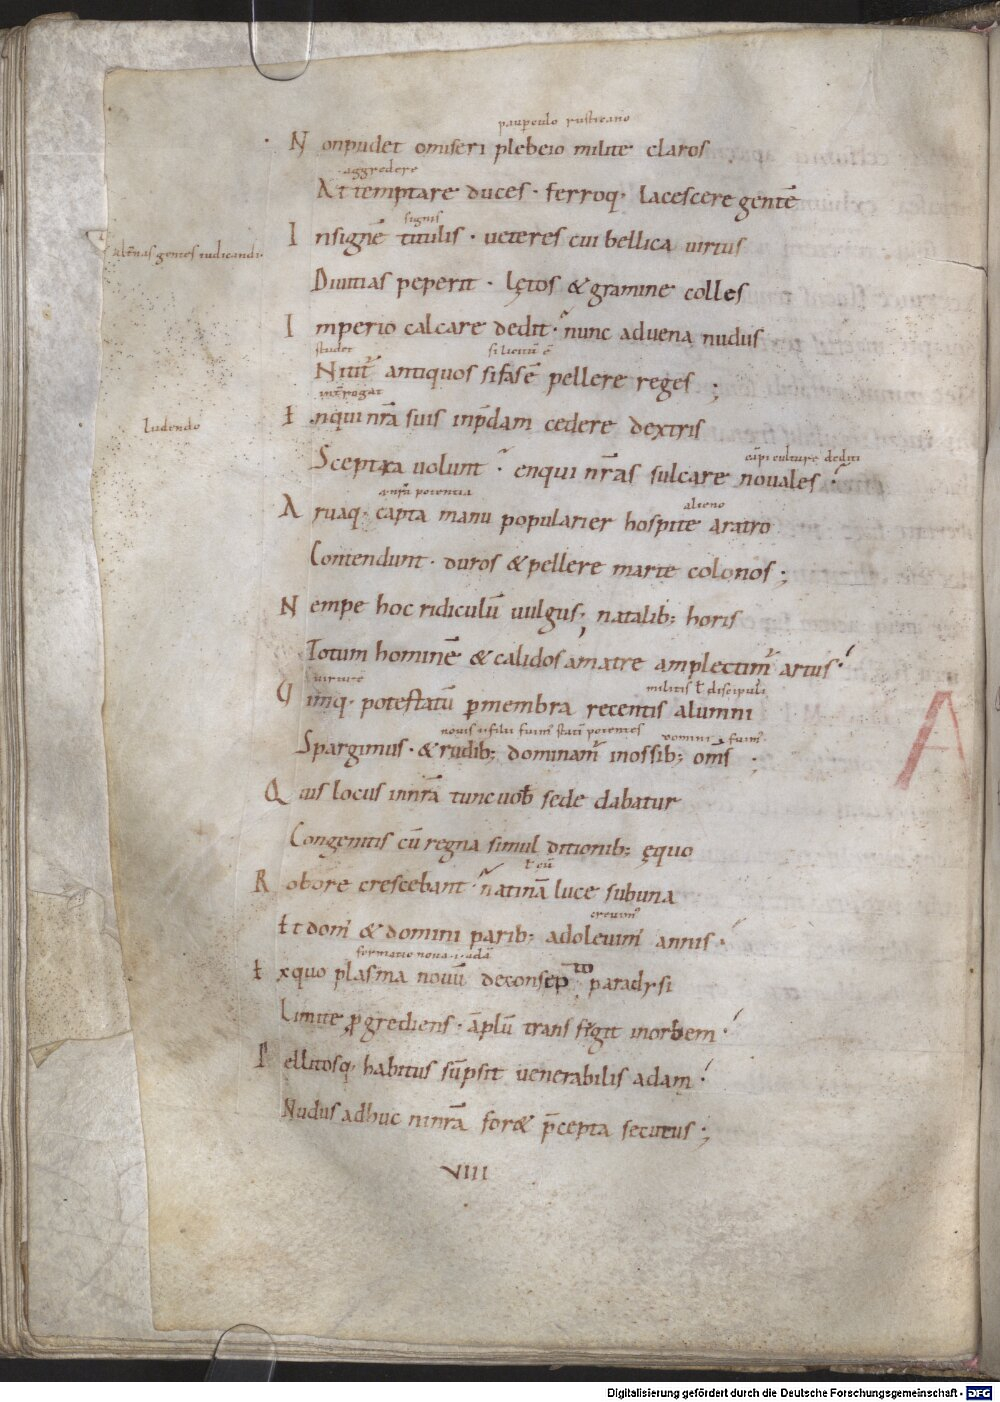 paupculo rusticano
N onpudet omiseri plebeio milite claros
aggredere
Attemptare duces · ferroq· lacescere gentē
signis
I nsignē titulis · ueteres cui bellica uirtus
altnas gentes iudicandi·
Diuitias peperit · lętos & gramine colles
I mperio calcare dedit · nunc aduena nudus
studet si licitū ē
Nitit antiquos sifasē pellere reges ;
introgat
E nqui nrā suis inpdam cedere dextris
ludendo
cāpi culture dediti
Sceptra uolunt · enqui nrās sulcare nouales ·
potentia alieno
A ruaq· capta manu popularier hospite aratro
Contendunt · duros & pellere marte colonos ;
N empe hoc ridiculū uulgus; natalib; horis
Totum hominē & calidos amatre amplectim artus ·
uirtute militis ł discipuli
imq· potestatū pmembra recentis alumni
Spargimus · & rudib; dominam inossib; oms ;
Q uis locus innrā tunc uob sede dabatur
Congenitis cū regna simul ditionib; ęquo
ł cū
R obore crescebant · natinā luce subuna
creuim
Et dom & domini parib; adoleuim annis ·
formatio noua ·i· adā
E xquo plasma nouū deconsep to paradysi
Limite pgrediens · āplū trans figit inorbem ·
P ellitosq· habitus sūpsit uenerabilis adam ·
Nudus adhuc ninrā for& pcepta secutus ;
VIII
A
Digitalisierung gefördert durch die Deutsche Forschungsgemeinschaft - DFG